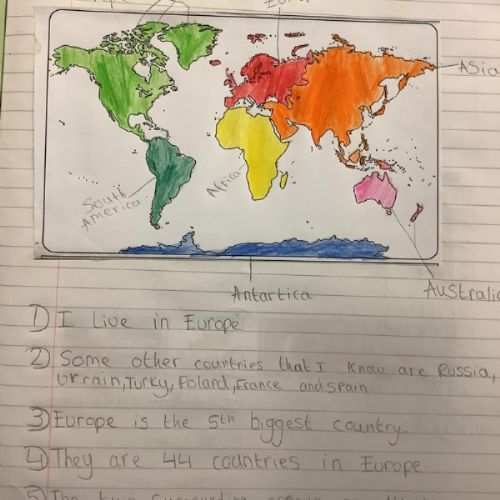 Asia
South
America
Africa
Australia
Antartica
1) I live in Europe.
2) Some other countries that I know are Russia,
Ukrain, Turky, Poland, France and Spain.
3) Europe is the 5th biggest country.
4) They are 44 countries in Europe
5) The two